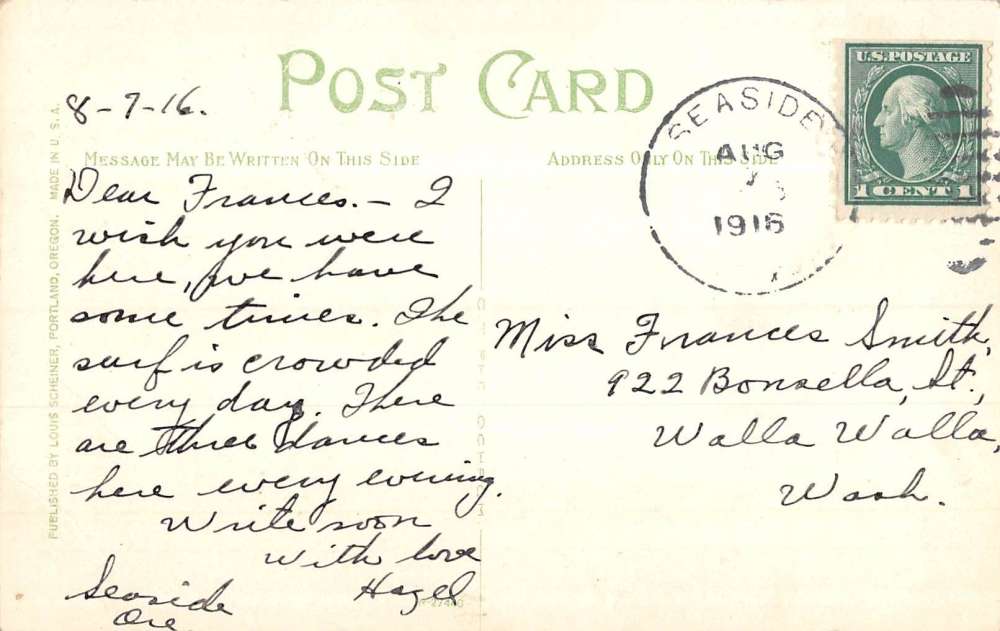 POST CARD
8-7-16.
MESSAGE MAY BE WRITTEN ON THIS SIDE
Dear Frances. - I
wish you were
here, we have
some times. The
surf is crowded
every day. There
are three dances
here every evening.
Write soon
With love
Hazel
Seaside
Ore
PUBLISHED BY LOUIS SCHEINER, PORTLAND, OREGON. MADE IN U.S.A.
ADDRESS ONLY ON THIS SIDE
SEASIDE
AUG
7
1916
U.S. POSTAGE
1 CENT 1
Miss Frances Smith,
922 Bonsella, St,
Walla Walla,
Wash.